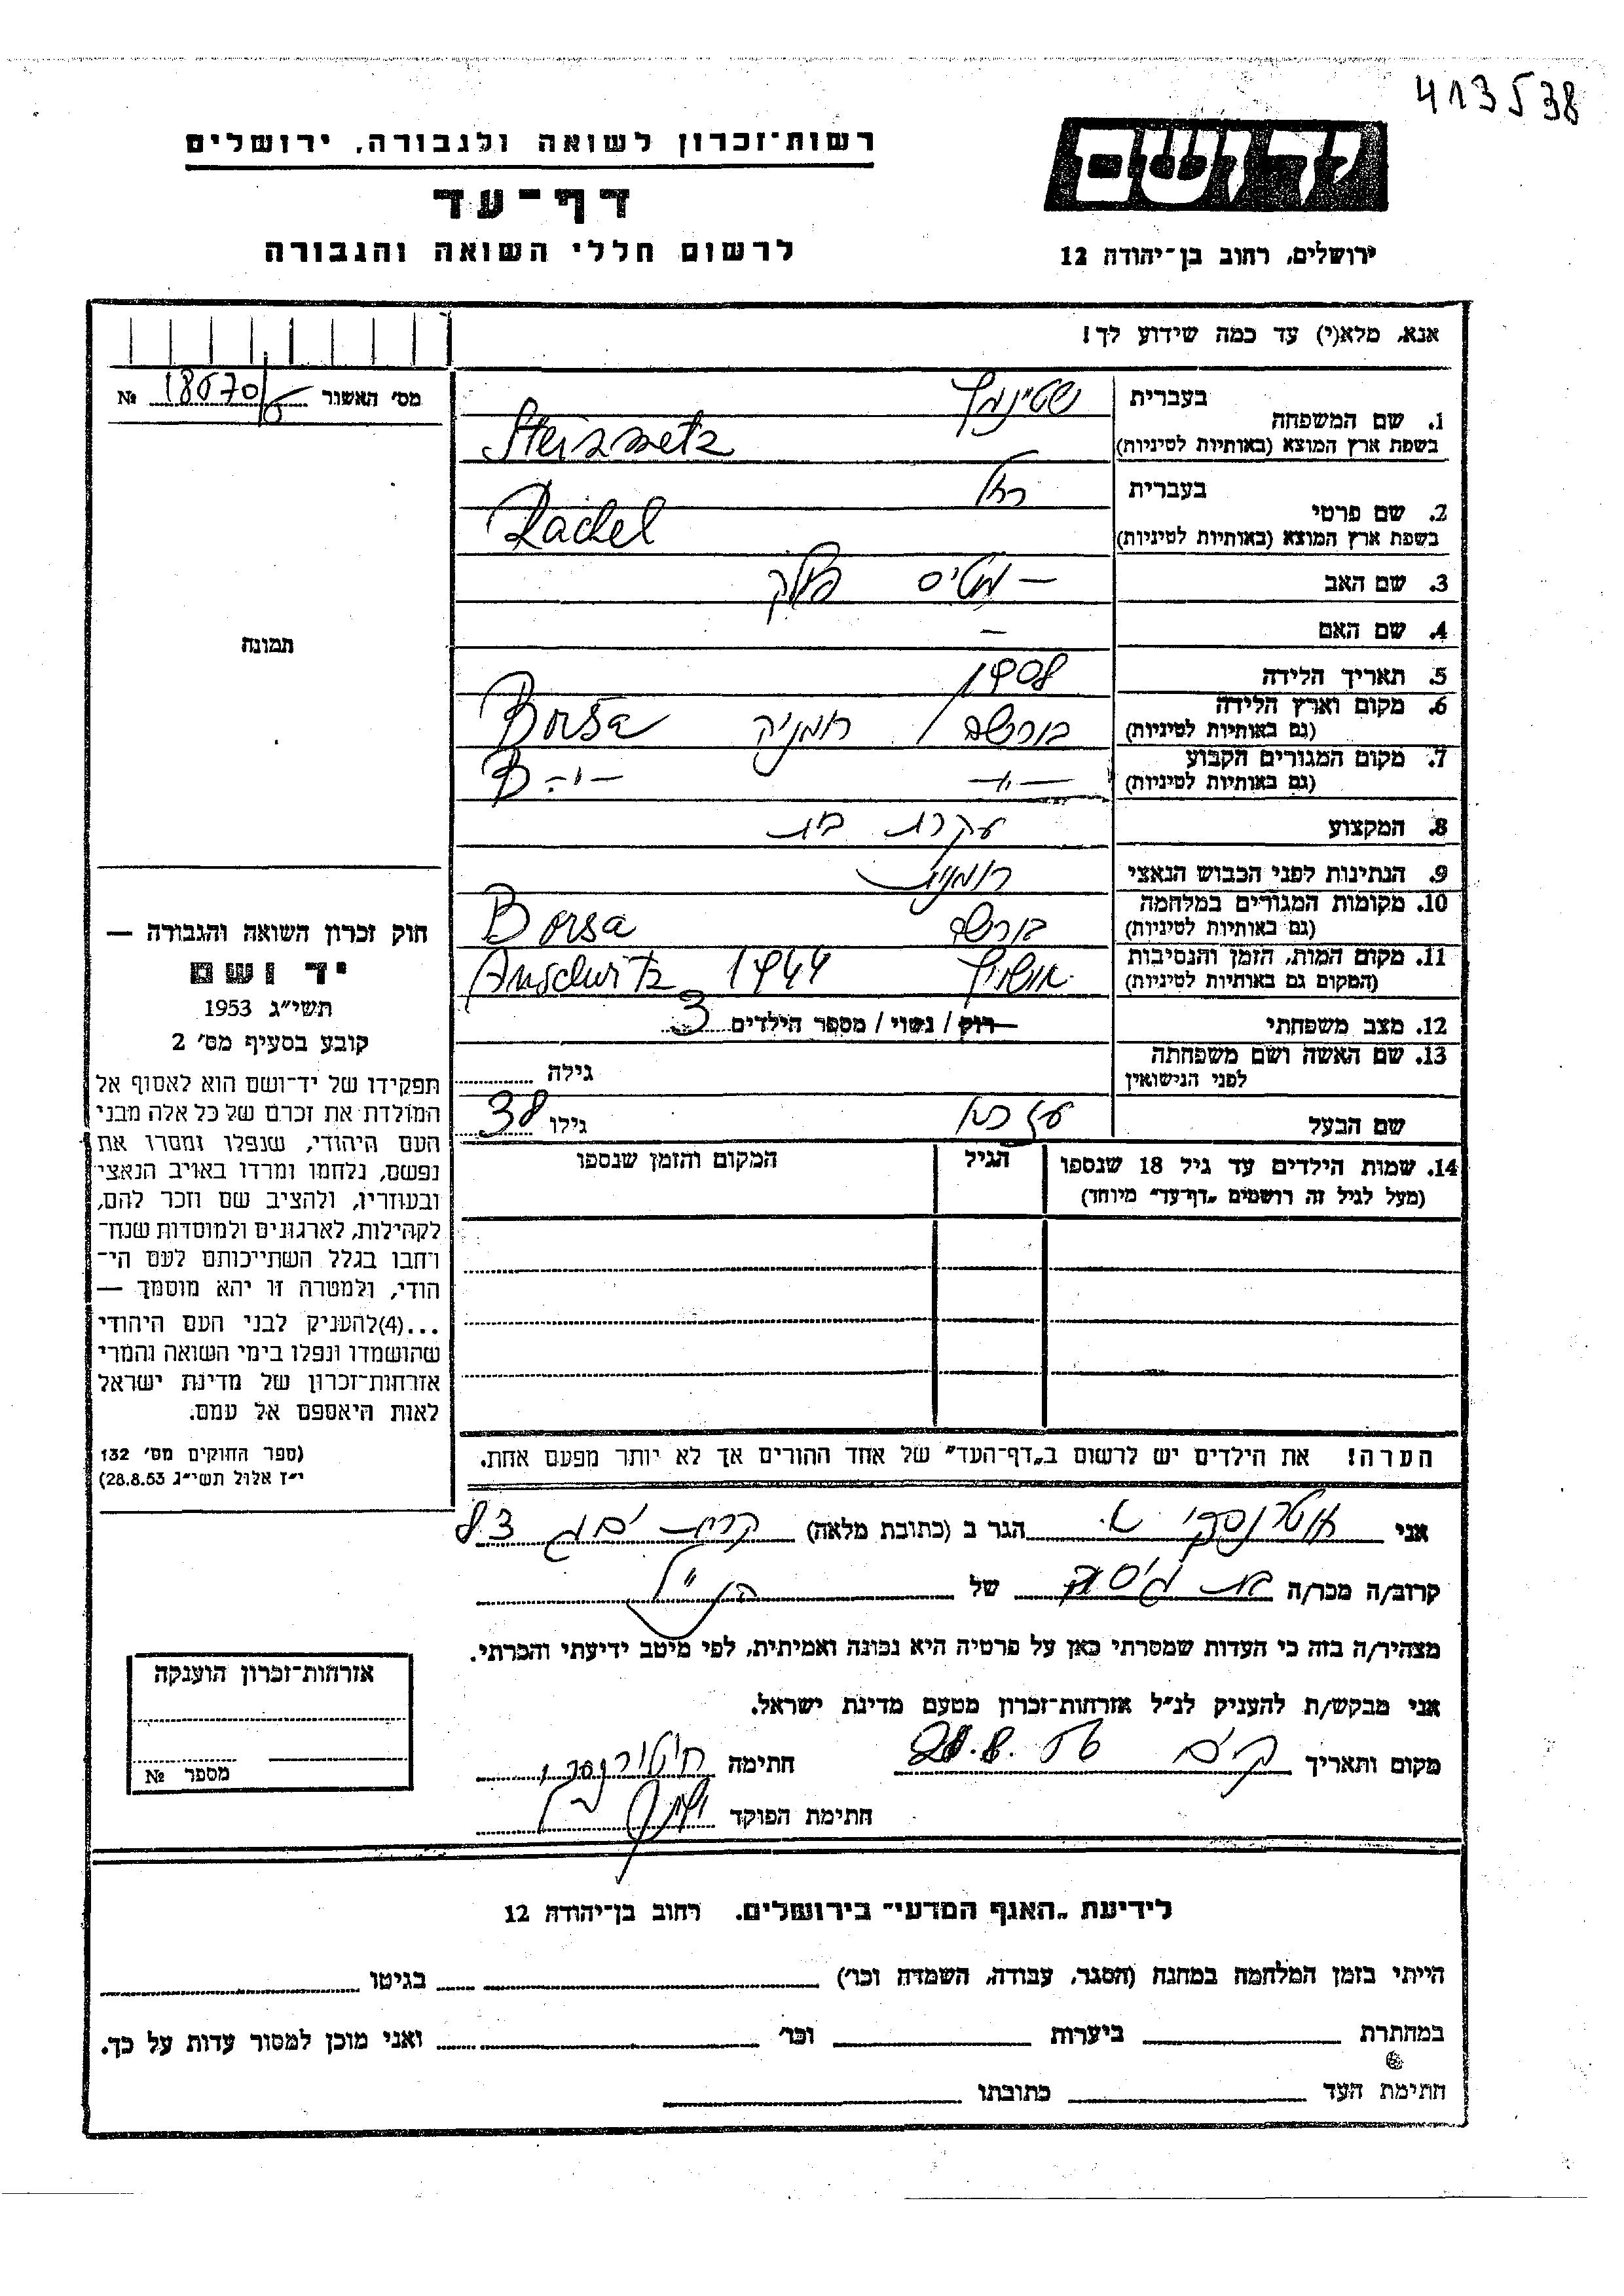 413538
רשות-זכרון לשואה ולגבורה, ירושלים
דף-עד
לרשום חללי השואה והגבורה
יד ושם
ירושלים, רחוב בן-יהודה 12
אנא, מלא(י) עד כמה שידוע לך!
מס' האשור 18570/5 №
תמונה
1. שם המשפחה
בעברית שטיינמץ
בשפת ארץ המוצא (באותיות לטיניות) Steinmetz
2. שם פרטי
בעברית רחל
בשפת ארץ המוצא (באותיות לטיניות) Rachel
3. שם האב
4. שם האם –
5. תאריך הלידה 1908
6. מקום וארץ הלידה בורשה / רומניה Borsa
(גם באותיות לטיניות)
7. מקום המגורים הקבוע –"– B –"–
(גם באותיות לטיניות)
8. המקצוע עקרת בית
9. הנתינות לפני הכבוש הנאצי רומנית
10. מקומות המגורים במלחמה בורשה Borsa
(גם באותיות לטיניות)
11. מקום המות, הזמן והנסיבות אושויץ 1944 Auschwitz
(המקום גם באותיות לטיניות)
12. מצב משפחתי רוק / נשוי / מספר הילדים 3
13. שם האשה ושם משפחתה
לפני הנישואין גילה
שם הבעל גילו 38
14. שמות הילדים עד גיל 18 שנספו הגיל המקום והזמן שנספו
(מעל לגיל זה רושמים "דף-עד" מיוחד)
חוק זכרון השואה והגבורה —
יד ושם
תשי"ג 1953
קובע בסעיף מס' 2
תפקידו של יד-ושם הוא לאסוף אל
המולדת את זכרם של כל אלה מבני
העם היהודי, שנפלו ומסרו את
נפשם, נלחמו ומרדו באויב הנאצי
ובעוזריו, ולהציב שם וזכר להם,
לקהילות, לארגונים ולמוסדות שנח-
רבו בגלל השתייכותם לעם הי-
הודי, ולמטרה זו יהא מוסמך —
...(4)להעניק לבני העם היהודי
שהושמדו ונפלו בימי השואה והמרי
אזרחות-זכרון של מדינת ישראל
לאות היאספם אל עמם.
(ספר החוקים מס' 132
י"ז אלול תשי"ג 28.8.53)
הערה! את הילדים יש לרשום ב"דף-העד" של אחד ההורים אך לא יותר מפעם אחת.
אני הגר ב (כתובת מלאה) קרית ים ג 83
קרוב/ה מכר/ה בת גיסה של הנ"ל
מצהיר/ה בזה כי העדות שמסרתי כאן על פרטיה היא נכונה ואמיתית, לפי מיטב ידיעתי והכרתי.
אני מבקש/ת להעניק לנ"ל אזרחות-זכרון מטעם מדינת ישראל.
מקום ותאריך ק.ים 56 .8. חתימה
חתימת הפוקד
אזרחות-זכרון הוענקה
מספר №
לידיעת "האגף המדעי" בירושלים. רחוב בן-יהודה 12
הייתי בזמן המלחמה במחנה (הסגר, עבודה, השמדה וכו') בגיטו
במחתרת ביערות וכו' ואני מוכן למסור עדות על כך.
חתימת העד כתובתו